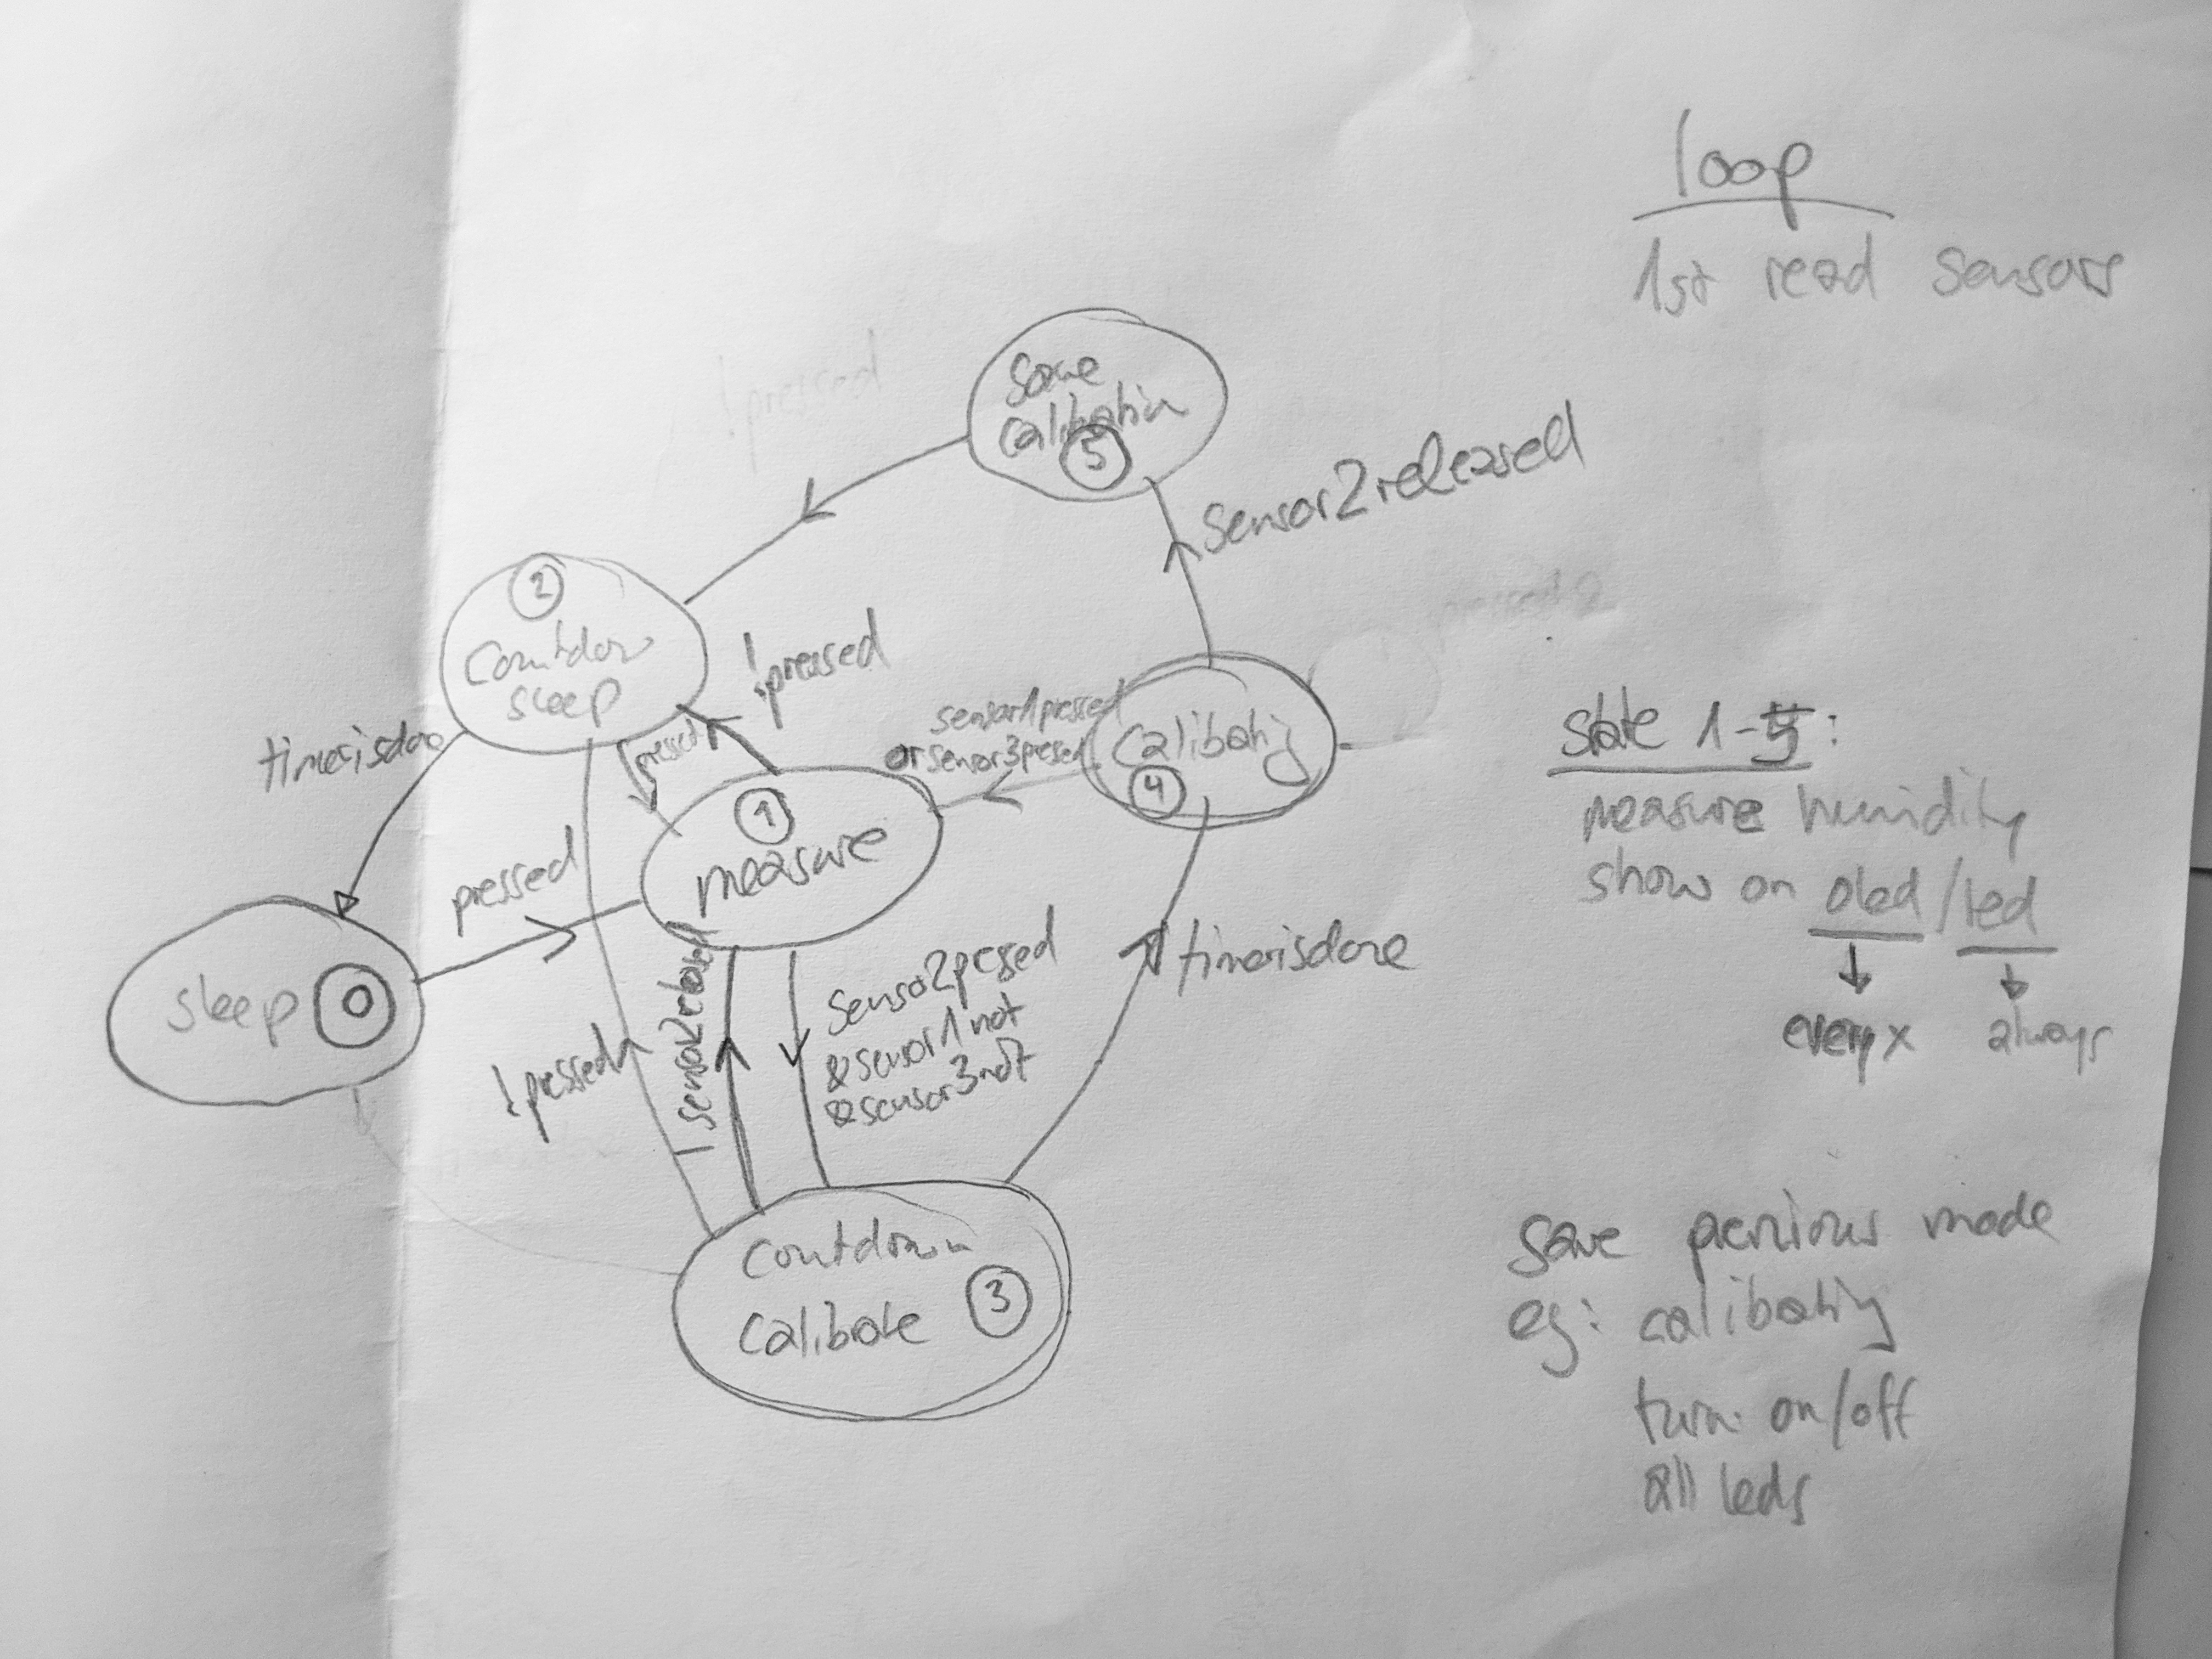 loop
1st read sensors
!pressed
Save
calibratin
5
Sensor2released
2
Countdow
sleep
!pressed
timerisdone
pressed
sensor1pressed
or sensor3presed
calibatig
4
1
measure
pressed
sleep 0
Sensor2pressed
& sensor1 not
& sensor3 not
timerisdone
!pressed
Countdown
Calibrate 3
State 1-5:
measure humidity
show on oled / led
every x always
Save previous mode
eg: calibatig
turn on/off
all leds